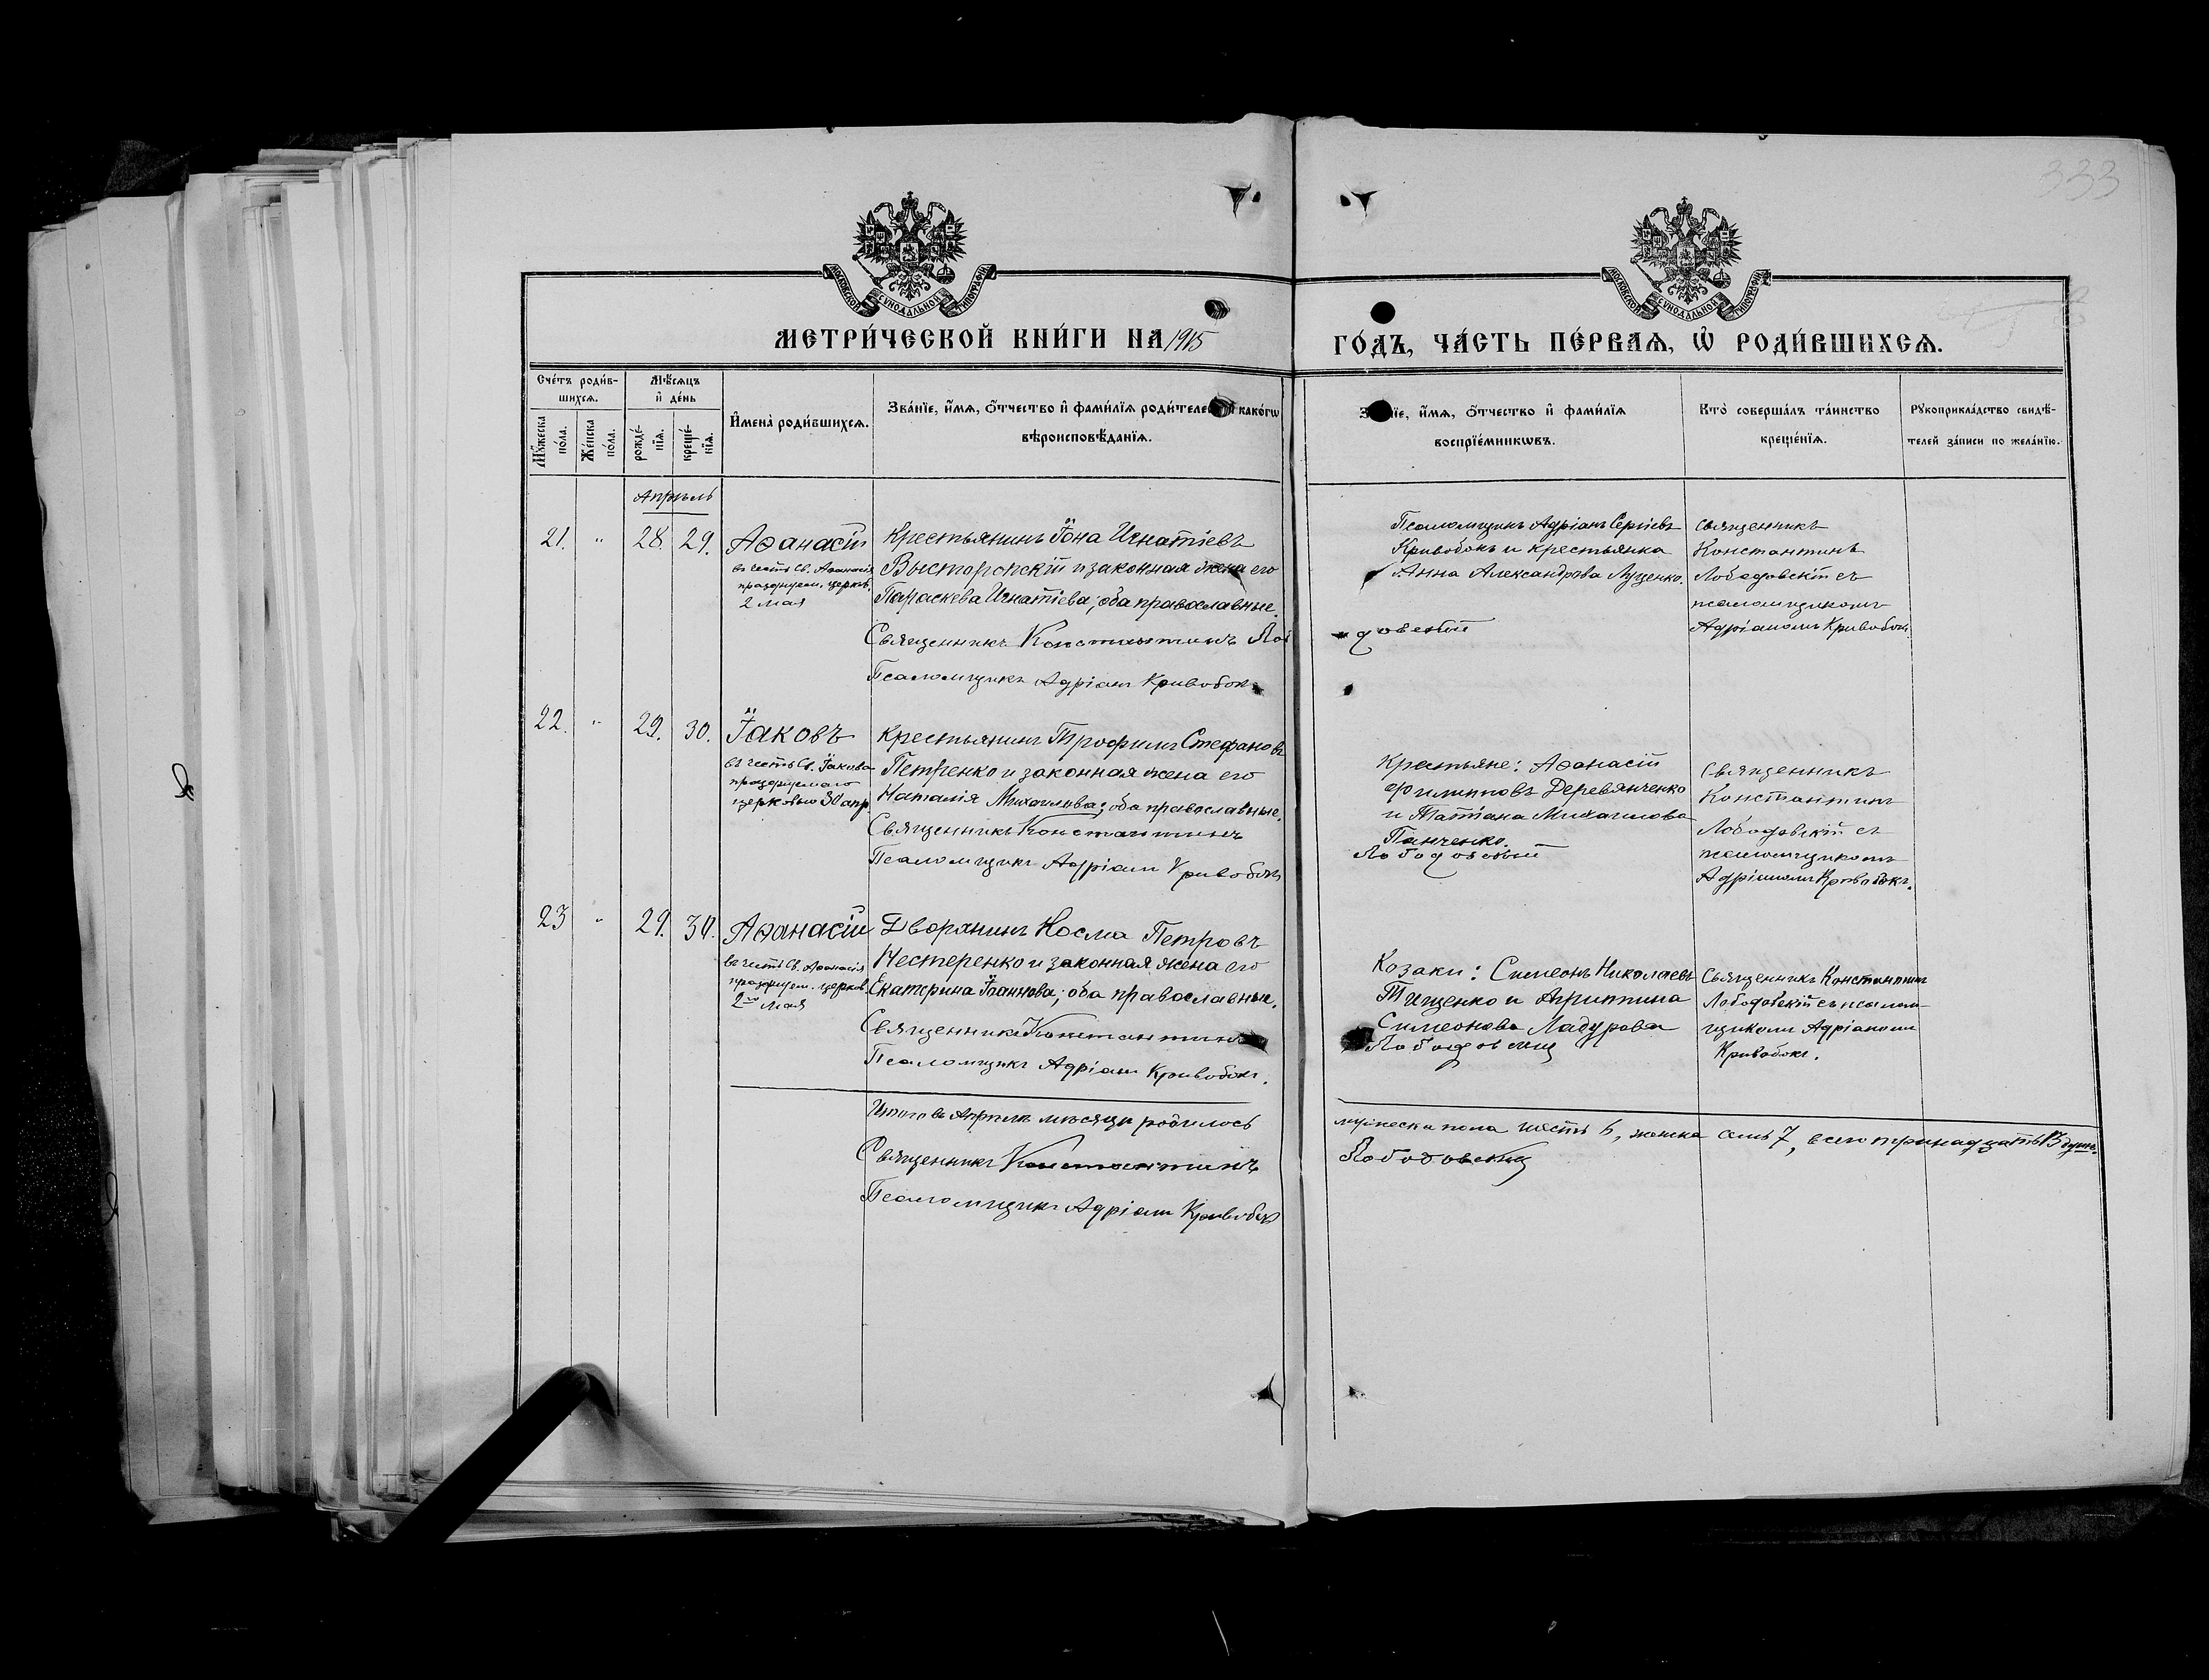 333
МОСКОВСКОЙ СѴНОДАЛЬНОЙ ТИПОГРАФІИ
МОСКОВСКОЙ СѴНОДАЛЬНОЙ ТИПОГРАФІИ
МЕТРИ́ЧЕСКОЙ КНИ́ГИ НА 1915
ГО́ДЪ, ЧА́СТЬ ПЕ́РВАѦ, Ѡ РОДИ́ВШИХСѦ.
Сче́тъ роди́в-
шихсѧ.
Мѣ́сѧцъ
и де́нь
Мꙋ́жеска
по́ла.
Же́нска
по́ла.
рожде́-
нїѧ.
креще́-
нїѧ.
Имена̀ роди́вшихсѧ.
Зва́нїе, и́мѧ, о́тчество и фами́лїѧ роди́телей и како́гѡ
вѣроисповѣ́данїѧ.
Зва́нїе, и́мѧ, о́тчество и фами́лїѧ
воспрїе́мникѡвъ.
Кто̀ соверша́лъ та́инство
креще́нїѧ.
Рꙋкоприкла́дство свидѣ́-
телей за́писи по жела́нїю.
Апрѣль
21. " 28. 29. Аѳанасій
въ честь Св. Аѳанасія
празднуем. церков.
2 мая
Крестьянинъ Іона Игнатіевъ
Высторопскій и законная жена его
Параскева Игнатіева; оба православные.
Священникъ Константинъ Лобо
Псаломщикъ Адріанъ Кривобокъ
Псаломщикъ Адріанъ Сергіевъ
Кривобокъ и крестьянка
Анна Александрова Луценко.
довскій
Священникъ
Константинъ
Лободовскій съ
псаломщикомъ
Адріаномъ Кривобок.
22. " 29. 30. Іаковъ
въ честь Св. Іакова
празднуемаго
церковью 30 апр.
Крестьянинъ Трофимъ Стефановъ
Петренко и законная жена его
Наталія Михаилова; оба православные.
Священникъ Константинъ
Псаломщикъ Адріанъ Кривобокъ
Крестьяне: Аѳанасій
Филипповъ Деревянченко
и Татіана Михаилова
Панченко.
Лободовскій
Священникъ
Константинъ
Лободовскій съ
псаломщикомъ
Адріаномъ Кривобокъ.
23 " 29. 30. Аѳанасій
въ честь Св. Аѳанасія
празднуем. церков.
2го мая
Дворянинъ Косма Петровъ
Нестеренко и законная жена его
Екатерина Іоаннова; оба православные.
Священникъ Константинъ
Псаломщикъ Адріанъ Кривобокъ.
Козаки: Симеонъ Николаевъ
Тищенко и Агриппина
Симеонова Ладурова
Лободовскій
Священникъ Константинъ
Лободовскій съ псалом-
щикомъ Адріаномъ
Кривобокъ.
Итого въ Апрѣлѣ мѣсяцѣ родилось
мужеска пола шесть 6, женска семь 7, всего тринадцать 13 душъ.
Священникъ Константинъ
Лободовскій
Псаломщикъ Адріанъ Кривобокъ